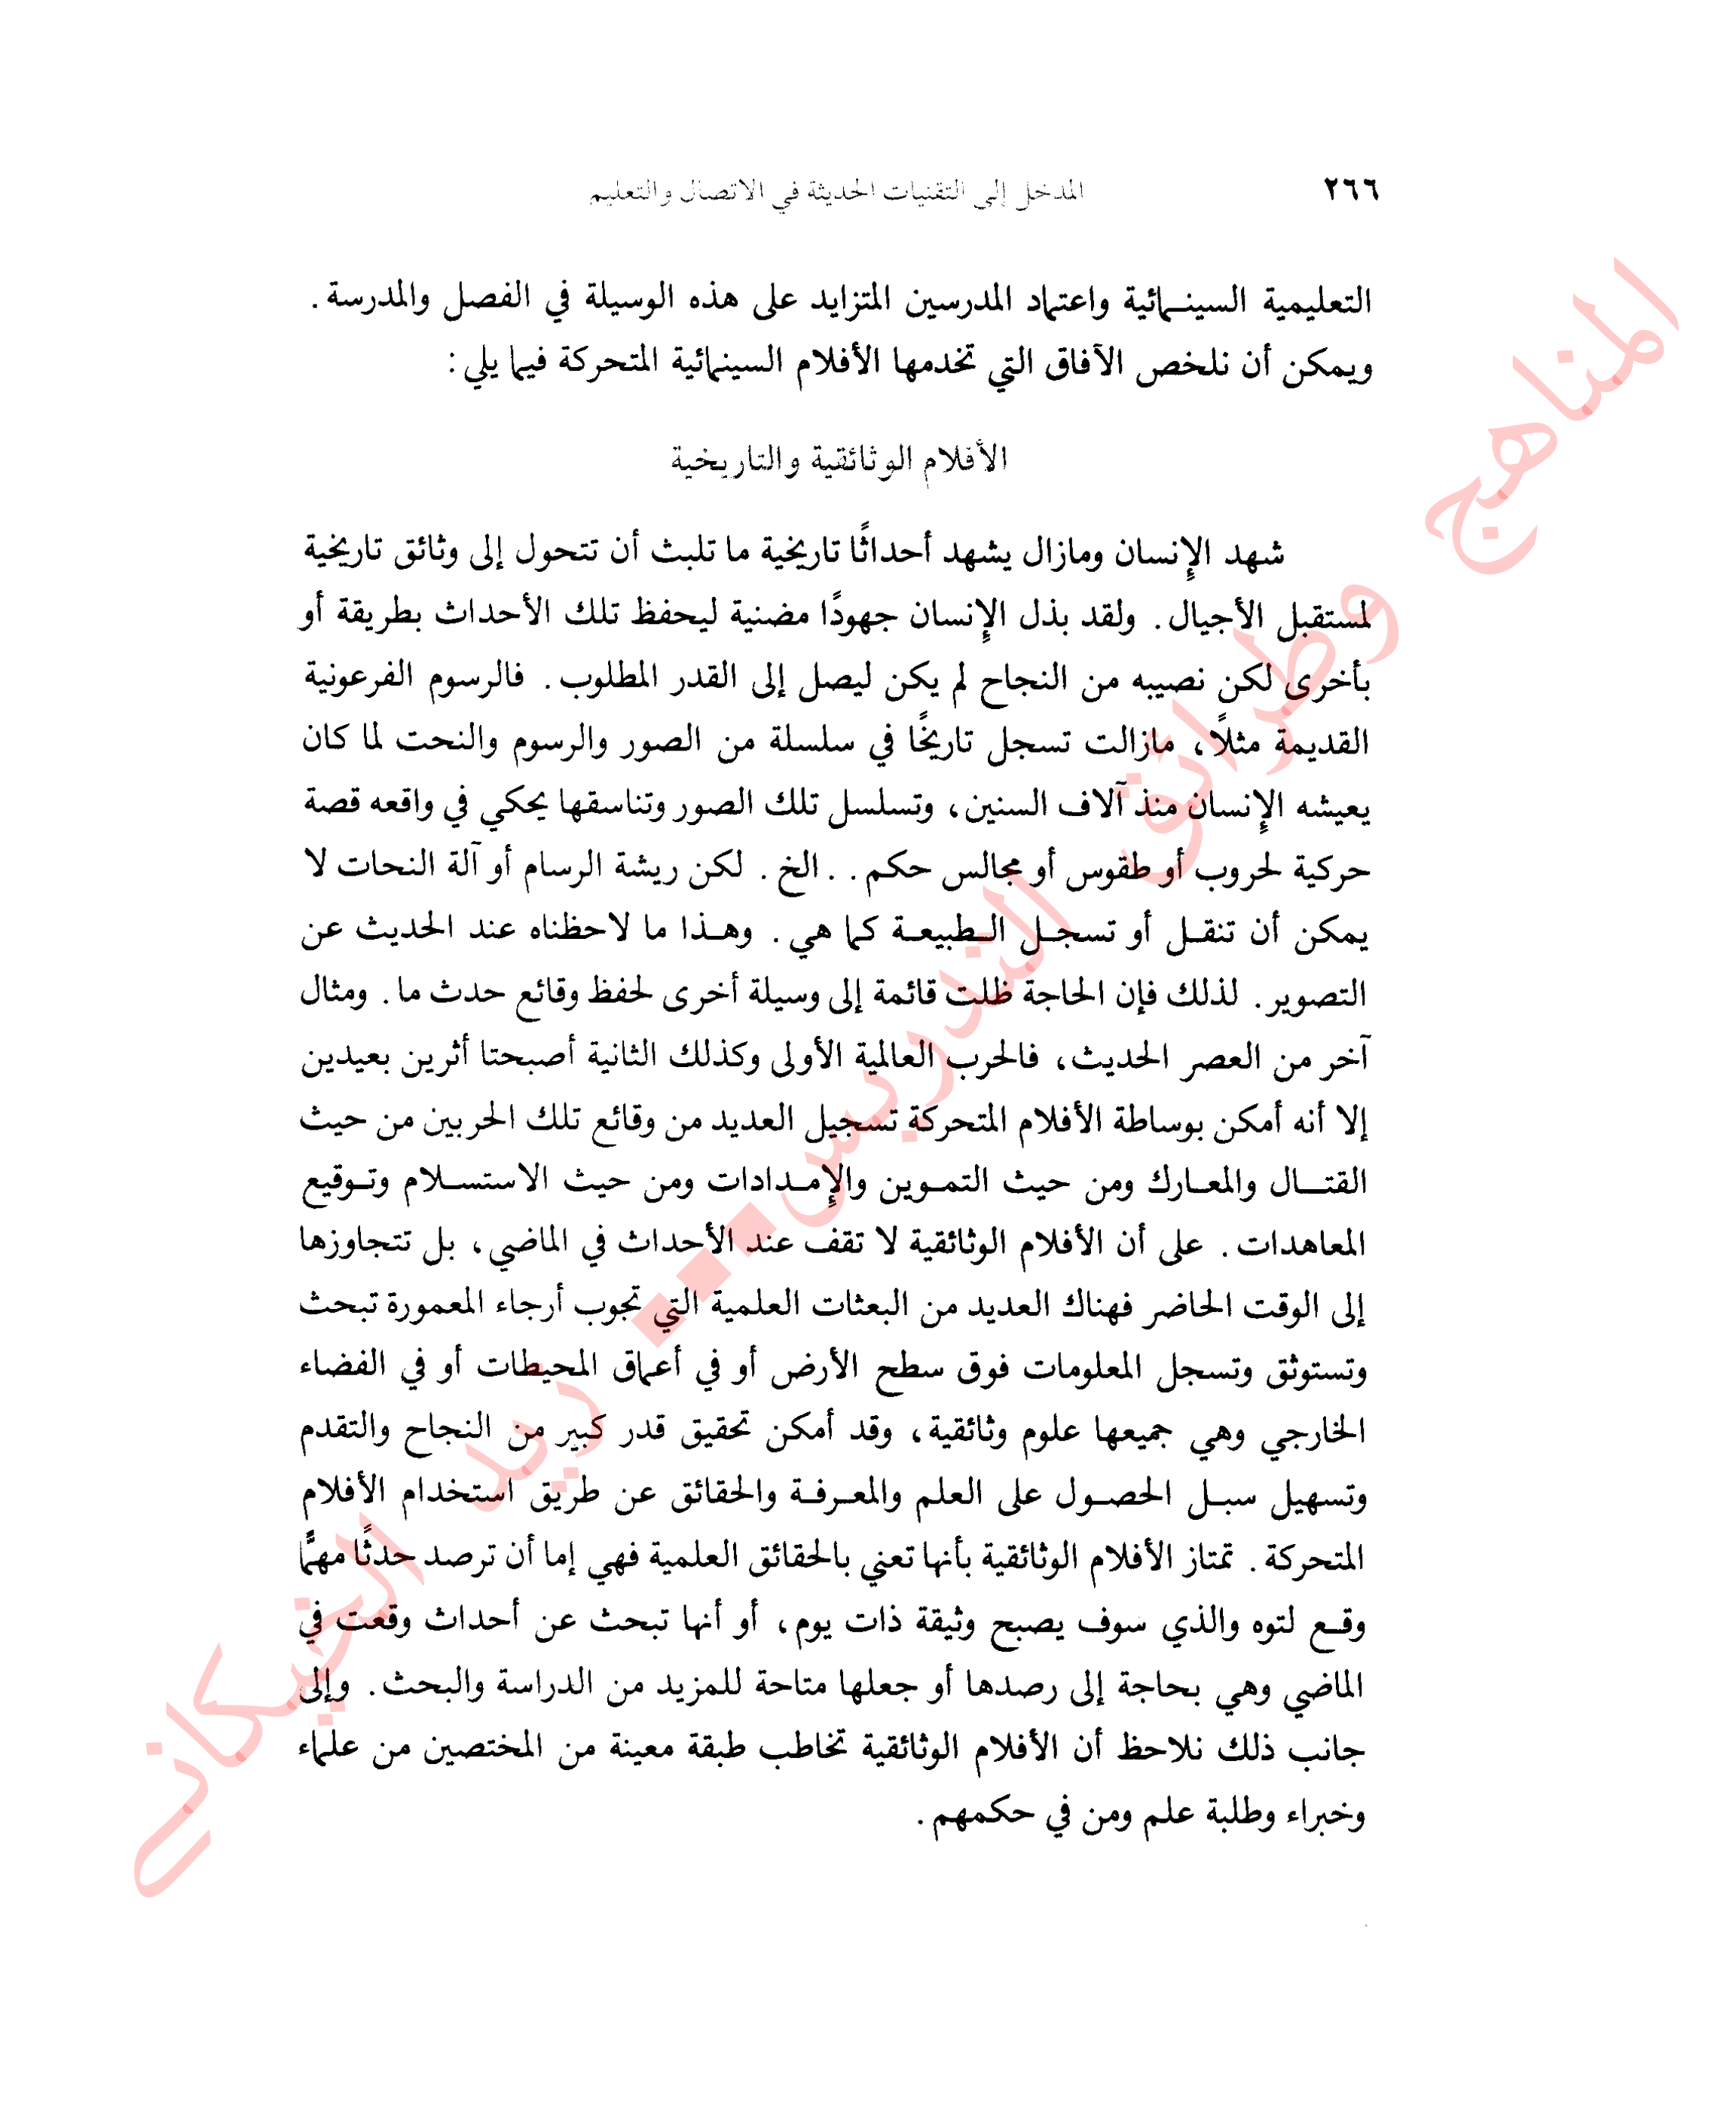 ٢٦٦
المدخل إلى التقنيات الحديثة في الاتصال والتعليم
التعليمية السينمائية واعتماد المدرسين المتزايد على هذه الوسيلة في الفصل والمدرسة.
ويمكن أن نلخص الآفاق التي تخدمها الأفلام السينمائية المتحركة فيما يلي:
الأفلام الوثائقية والتاريخية
شهد الإنسان ومازال يشهد أحداثًا تاريخية ما تلبث أن تتحول إلى وثائق تاريخية
لمستقبل الأجيال. ولقد بذل الإنسان جهودًا مضنية ليحفظ تلك الأحداث بطريقة أو
بأخرى لكن نصيبه من النجاح لم يكن ليصل إلى القدر المطلوب. فالرسوم الفرعونية
القديمة مثلاً، مازالت تسجل تاريخًا في سلسلة من الصور والرسوم والنحت لما كان
يعيشه الإنسان منذ آلاف السنين، وتسلسل تلك الصور وتناسقها يحكي في واقعه قصة
حركية لحروب أو طقوس أو مجالس حكم. . .الخ. لكن ريشة الرسام أو آلة النحات لا
يمكن أن تنقل أو تسجل الطبيعة كما هي. وهذا ما لاحظناه عند الحديث عن
التصوير. لذلك فإن الحاجة ظلت قائمة إلى وسيلة أخرى لحفظ وقائع حدث ما. ومثال
آخر من العصر الحديث، فالحرب العالمية الأولى وكذلك الثانية أصبحتا أثرين بعيدين
إلا أنه أمكن بوساطة الأفلام المتحركة تسجيل العديد من وقائع تلك الحربين من حيث
القتال والمعارك ومن حيث التموين والإمدادات ومن حيث الاستسلام وتوقيع
المعاهدات. على أن الأفلام الوثائقية لا تقف عند الأحداث في الماضي، بل تتجاوزها
إلى الوقت الحاضر فهناك العديد من البعثات العلمية التي تجوب أرجاء المعمورة تبحث
وتستوثق وتسجل المعلومات فوق سطح الأرض أو في أعماق المحيطات أو في الفضاء
الخارجي وهي جميعها علوم وثائقية، وقد أمكن تحقيق قدر كبير من النجاح والتقدم
وتسهيل سبل الحصول على العلم والمعرفة والحقائق عن طريق استخدام الأفلام
المتحركة. تمتاز الأفلام الوثائقية بأنها تعني بالحقائق العلمية فهي إما أن ترصد حدثًا مهمًّا
وقع لتوه والذي سوف يصبح وثيقة ذات يوم، أو أنها تبحث عن أحداث وقعت في
الماضي وهي بحاجة إلى رصدها أو جعلها متاحة للمزيد من الدراسة والبحث. وإلى
جانب ذلك نلاحظ أن الأفلام الوثائقية تخاطب طبقة معينة من المختصين من علماء
وخبراء وطلبة علم ومن في حكمهم.
المناهج وطرائق التدريس... ريد الخيكاني